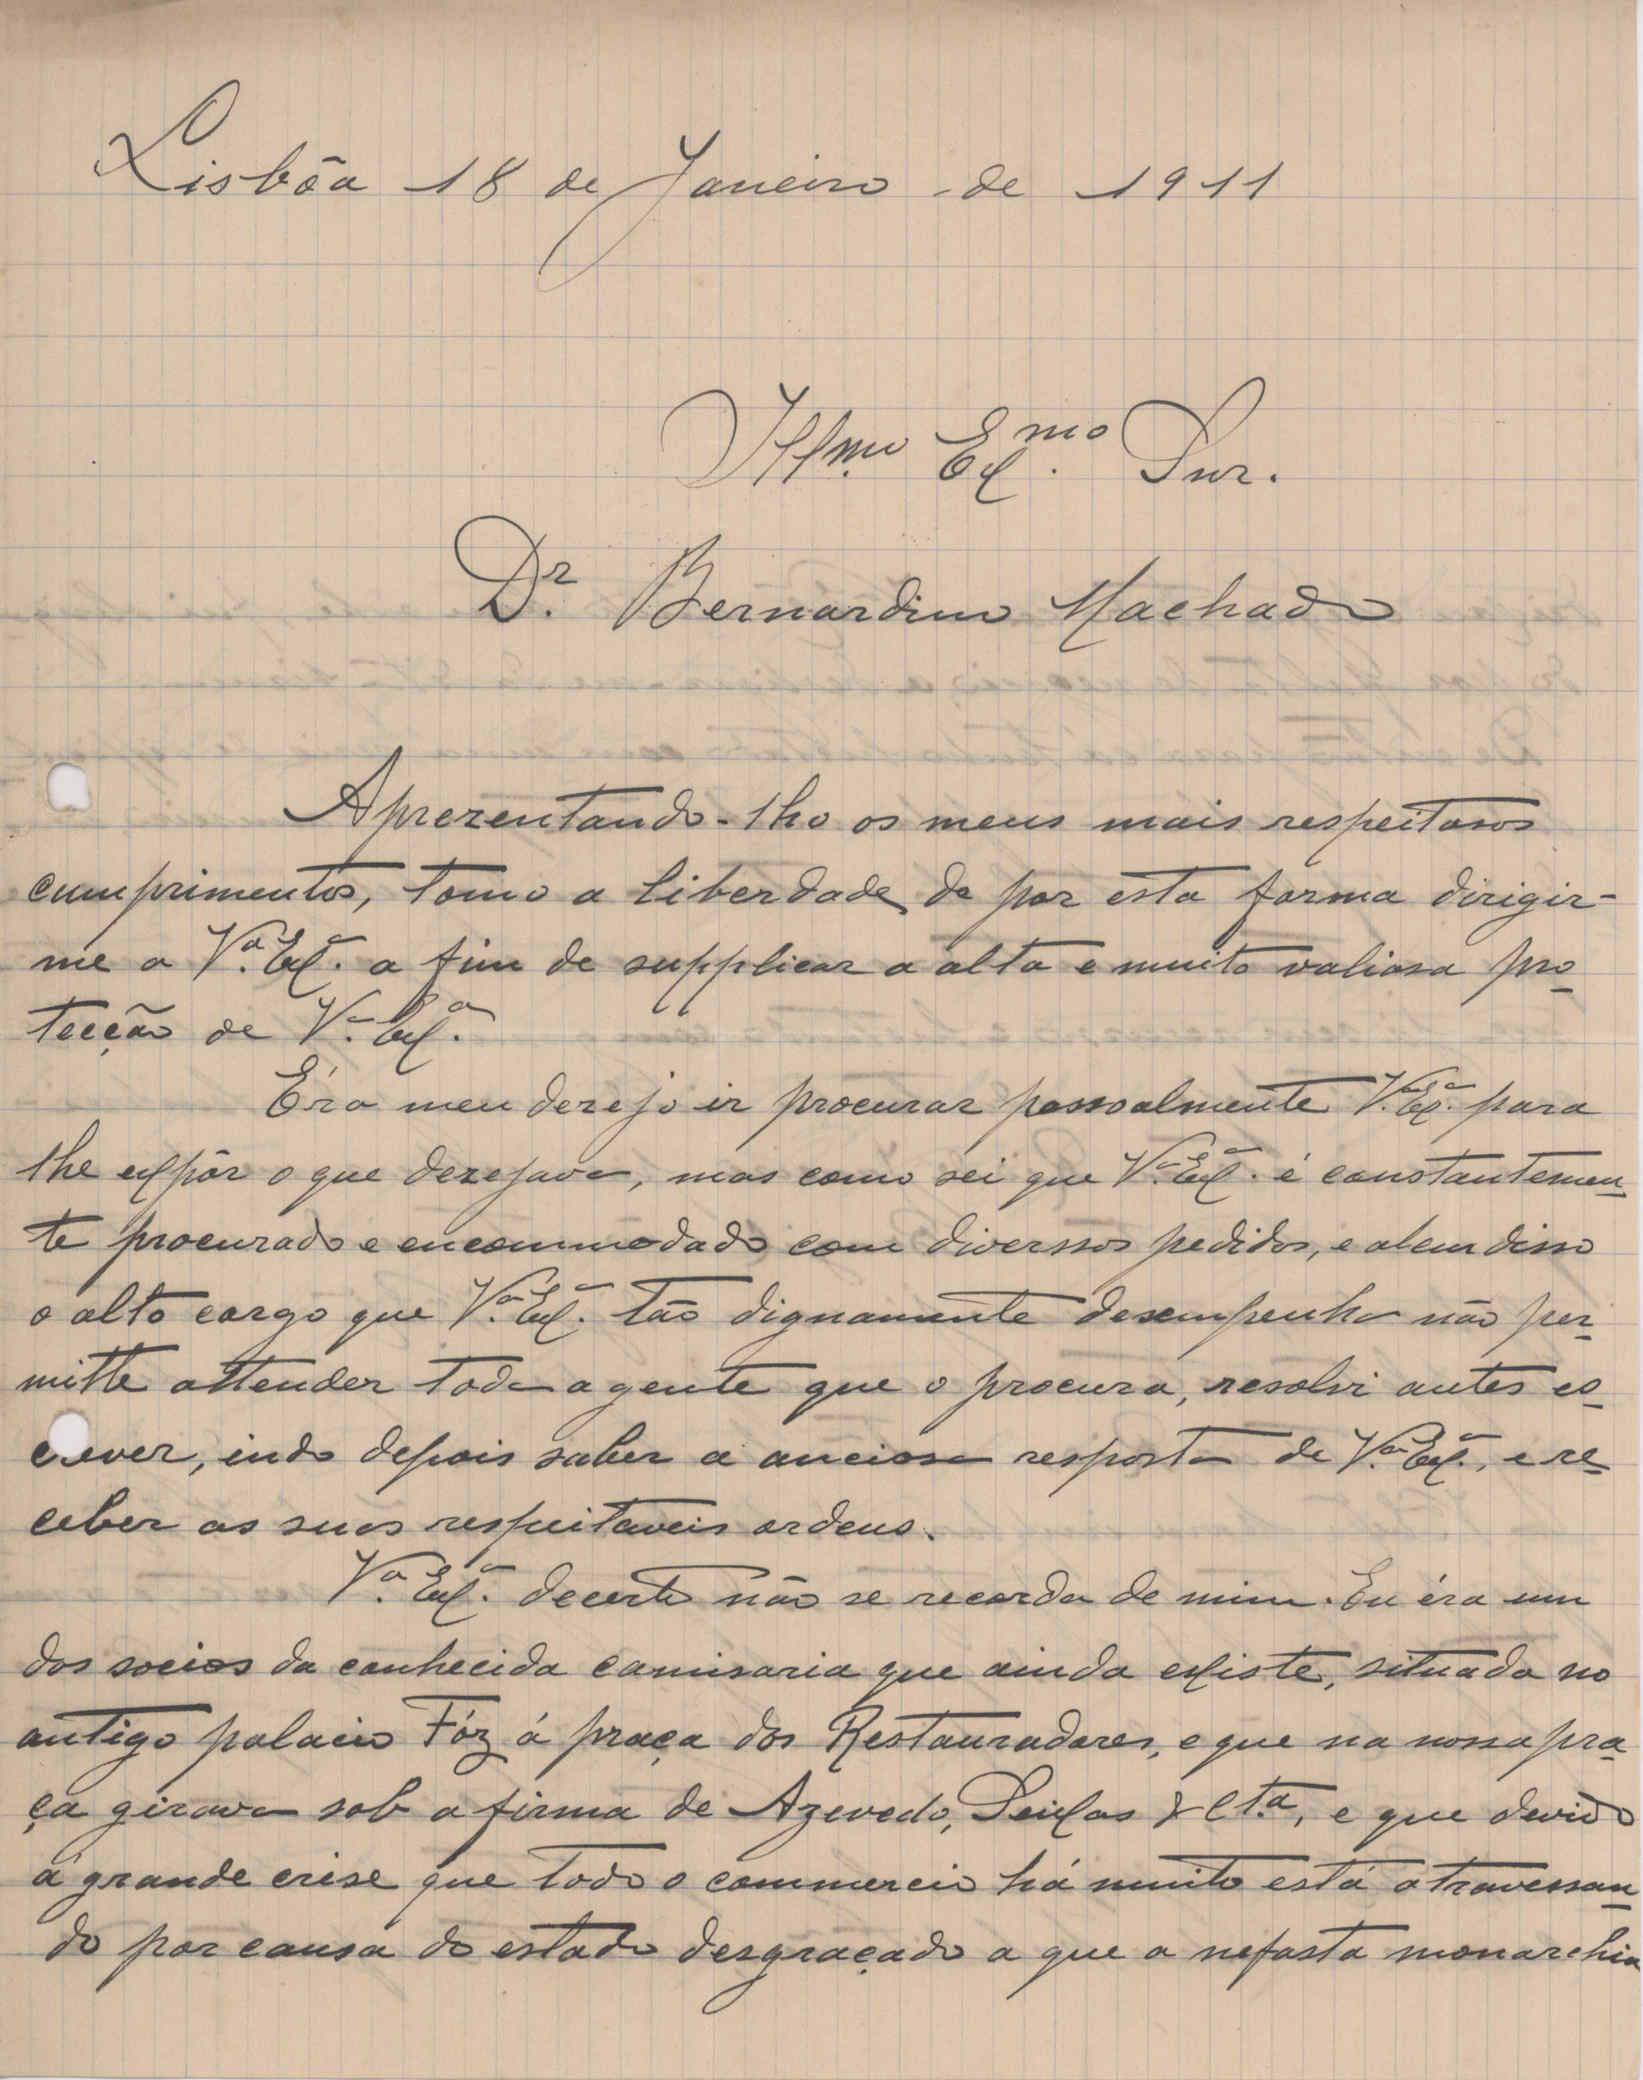 Lisbôa 18 de Janeiro de 1911
Illmo Exmo. Snr.
Dr. Bernardino Machado
Aprezentando-lhe os meus mais respeitosos
cumprimentos, tomo a liberdade de por esta forma dirigir-
me a Va. Exa. a fim de supplicar a alta e muito valiosa pro-
tecção de Va. Exa.
Éra meu dezejo ir procurar pessoalmente Va. Exa. para
lhe expôr o que dezejava, mas como sei que Va. Exa. é constantemen-
te procurado e encommodado com diverssos pedidos, e alem disso
o alto cargo que Va. Exa. tão dignamente desempenha não per-
mitte attender toda a gente que o procura, resolvi antes es-
crever, indo depois saber a anciosa resposta de Va. Exa., e re-
ceber as suas respeitaveis ordens.
Va. Exa. decerto não se recorda de mim. Eu éra um
dos socios da conhecida camisaria que ainda existe, situada no
antigo palacio Fóz á praça dos Restauradores, e que na nossa pra-
ça girava sob a firma de Azevedo, Seixas & Cta., e que devido
á grande crise que todo o commercio há muito está atravessan-
do por causa do estado desgraçado a que a nefasta monarchia